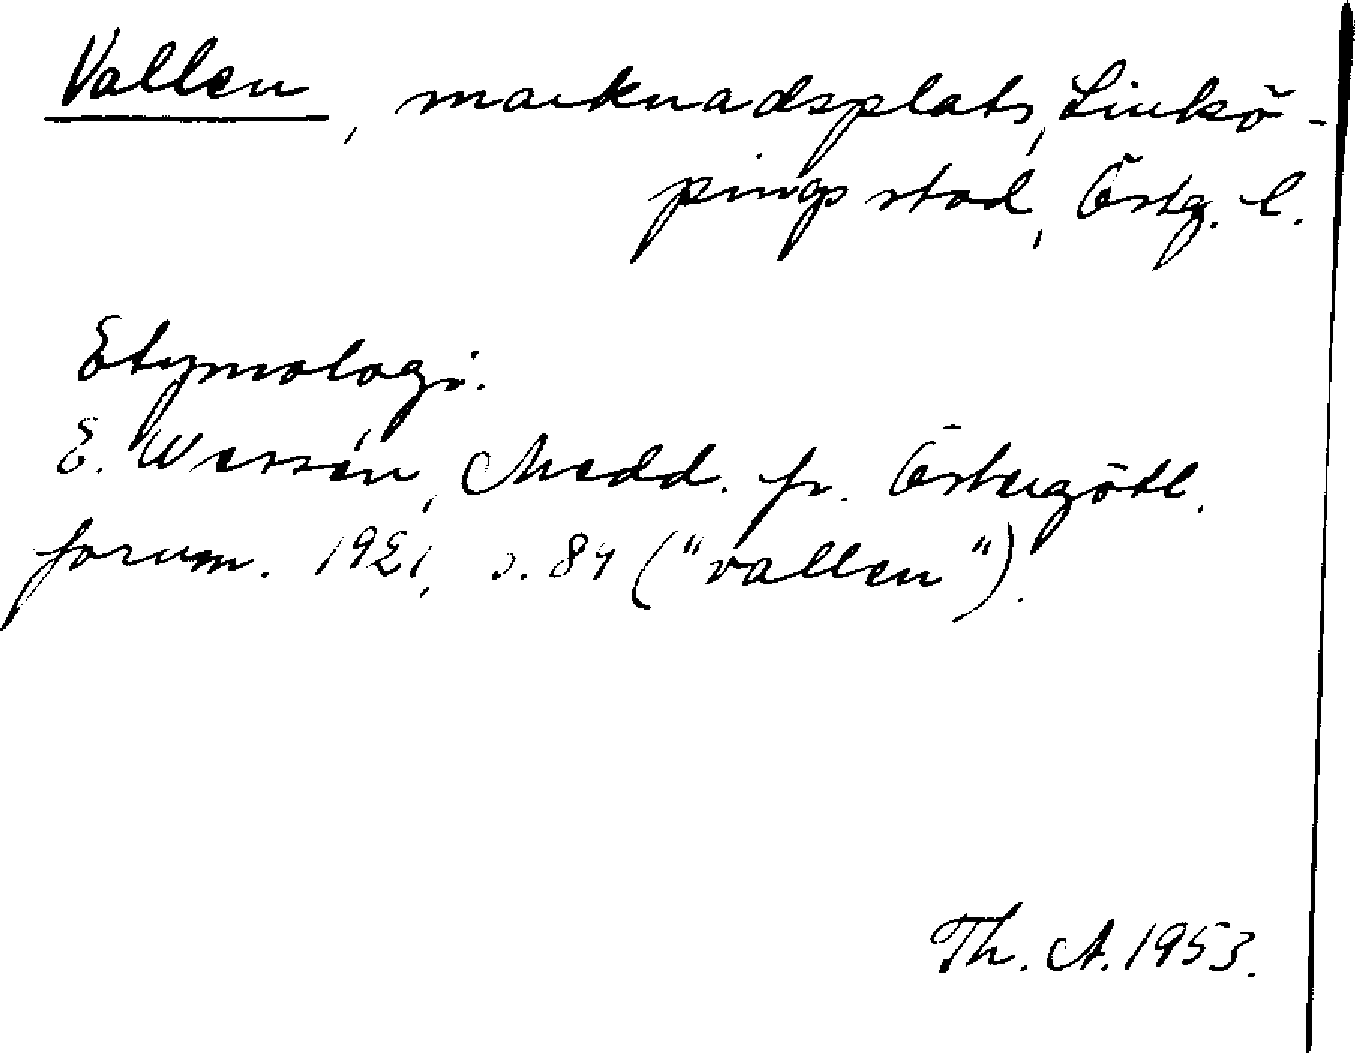 Vallen, marknadsplats, Linkö-
pings stad, Östg. l.
Etymologi.
E. Wessén, Medd. fr. Östergötl.
fornm. 1921, s. 84 ("vallen").
Th. A. 1953.